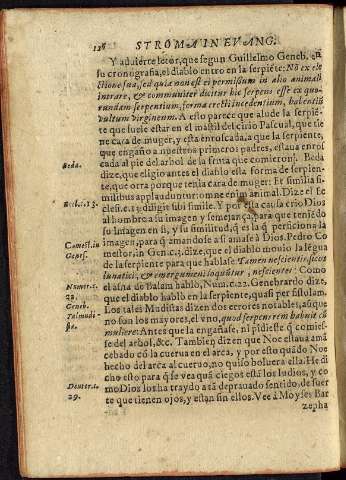 128 STROMA IN EVANG.
Y aduierte letor, que segun Guillelmo Geneb. en
su cronografia, el diablo entro en la serpiẽte: Nõ ex ele
ctione sua, sed quia non est ei permissum in alio animali
intrare, & communiter dicitur hic serpens esse ex quo-
rundam serpentium, forma erecti incedentium, habentiũ
vultum virgineum. A esto parece que alude la serpiẽ-
te que suele estar en el mastil del cirio Pascual, que tie
ne cara de muger, y esta enroscada, a que la serpiente,
que engaño a nuestros primeros padres, estaua enros
cada al pie del arbol de la fruta que comieron. Beda
Beda.
dize, que eligio antes el diablo esta forma de serpien-
te, que otra porque tenia cara de muger: Et similia si-
milibus applauduntur: omne enim animal. Dize el Ec
cles. c. 13. diligit sibi simile. Y por esta causa crio Dios
Eccl. c. 13.
al hombre a su imagen y semejança, para que teniẽdo
su imagen en si, y su similitud, q̃ es la q̃ perficiona la
imagen, para q̃ amandose a si amase à Dios. Pedro Co
Comest. in
mestor, in Gen. c. 3. dize, que el diablo mouio la lẽgua
Genes.
de la serpiente para que hablase. Tamen nesciente, sicut
lunatici, & energumeni loquũtur, nescientes: Como
el asna de Balam hablo, Num. c. 22. Genebrardo dize,
Numer. c.
22.
que el diablo hablò en la serpiente, quasi per fistulam.
Geneb.
Los tales Mudistas dizen dos errores notables, aũque
Talmudi
sta.
no son los mayores, el vno, quod serpens rem habuit cũ
muliere: Antes que la engañase, ni pidiese q̃ comies-
se del arbol, &c. Tambien dizen que Noe estaua amã
cebado cõ la cuerua en el arca, y por esto quãdo Noe
hecho del arca al cueruo, no quiso boluera ella. He di
cho esto para q̃ se vea quã ciegos estã los Iudios, y co
mo Dios los ha traydo a sã deprauado sentido, de suer
Deuter. c.
29.
te que tienen ojos, y estan sin ellos. Vee à Moyses Bar
zepha